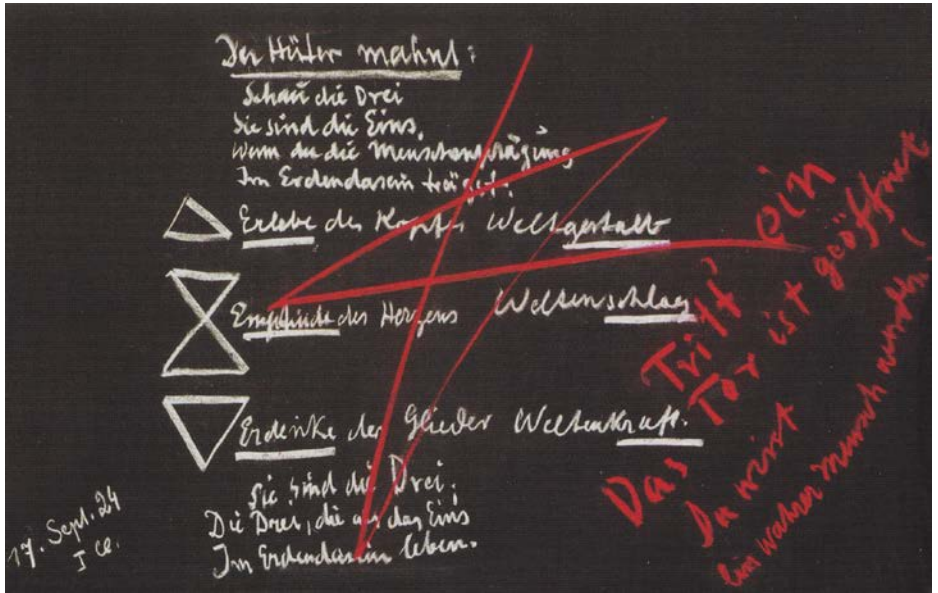 Der Hüter mahnt:
Schau die Drei
Sie sind die Eins,
Wenn du die Menschenprägung
Im Erdendasein trägest.
Erlebe des Kopfes Weltgestalt
Empfinde des Herzens Weltenschlag
Erdenke der Glieder Weltenkraft.
Sie sind die Drei,
Die Drei, die als das Eins
Im Erdendasein leben.
17. Sept. 24
Tritt ein
Das Tor ist geöffnet
Du wirst
Ein wahrer Mensch werden!